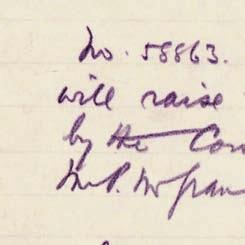 No. 58863.
will raise
by the Con